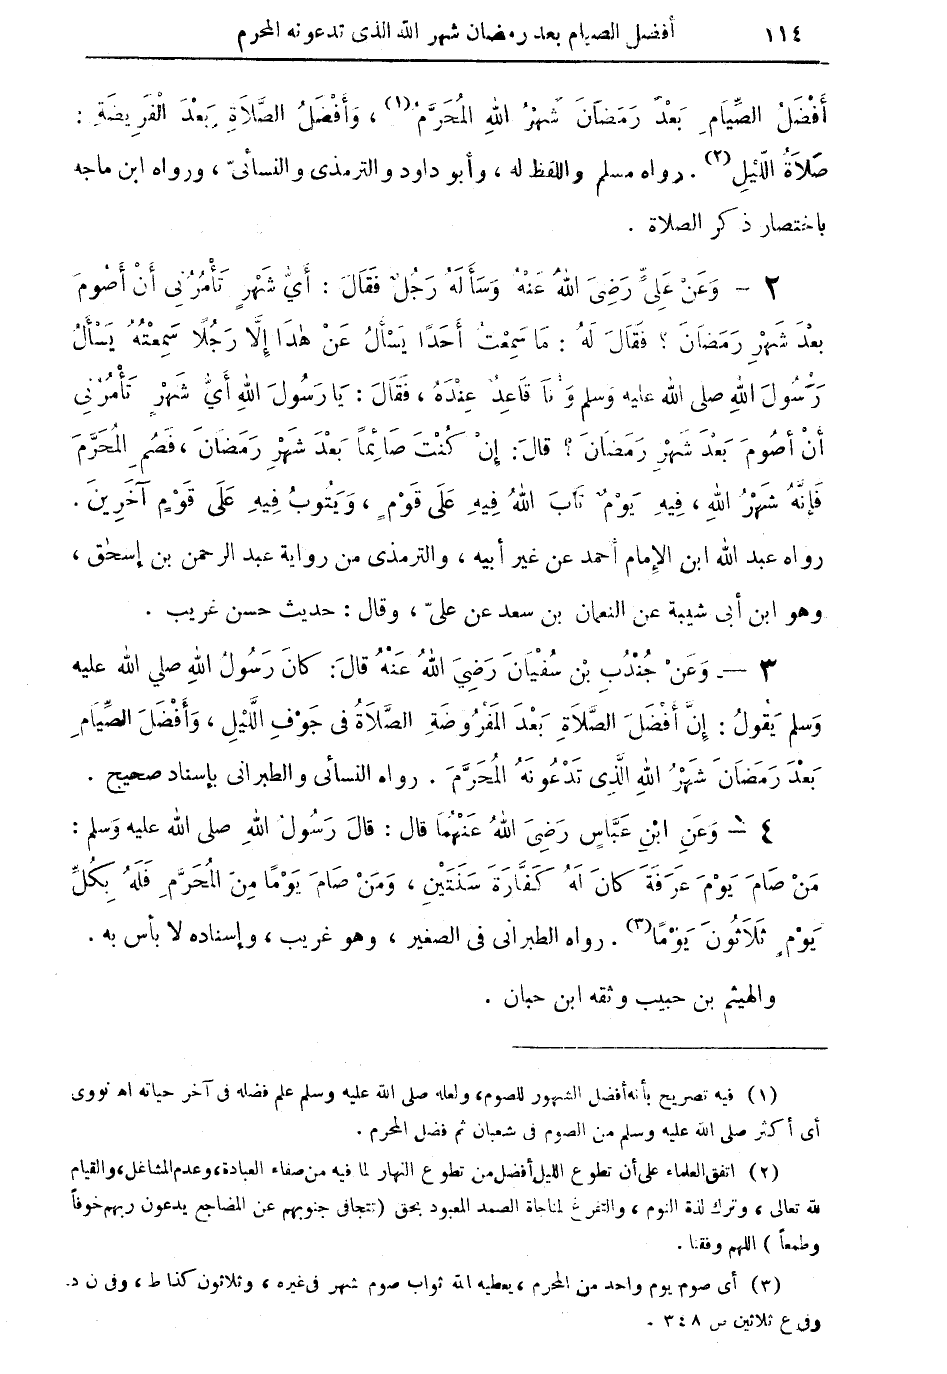 ١١٤ أفضل الصيام بعد رمضان شهر الله الذى تدعونه المحرم
أَفْضَلُ الصِّيَامِ بَعْدَ رَمَضَانَ شَهْرُ اللهِ الْمُحَرَّمُ(١) ، وَأَفْضَلُ الصَّلَاةِ بَعْدَ الْفَرِيضَةِ :
صَلَاةُ اللَّيْلِ(٢) . رواه مسلم واللفظ له ، وأبو داود والترمذى والنسائىّ ، ورواه ابن ماجه
باختصار ذكر الصلاة .
٢ – وَعَنْ عَلِيٍّ رَضِيَ اللهُ عَنْهُ وَسَأَلَهُ رَجُلٌ فَقَالَ : أَيُّ شَهْرٍ تَأْمُرُنِي أَنْ أَصُومَ
بَعْدَ شَهْرِ رَمَضَانَ ؟ فَقَالَ لَهُ : مَا سَمِعْتُ أَحَدًا يَسْأَلُ عَنْ هٰذَا إِلَّا رَجُلًا سَمِعْتُهُ يَسْأَلُ
رَسُولَ اللهِ صلى الله عليه وَسلم وَأَنَا قَاعِدٌ عِنْدَهُ ، فَقَالَ : يَا رَسُولَ اللهِ أَيُّ شَهْرٍ تَأْمُرُنِي
أَنْ أَصُومَ بَعْدَ شَهْرِ رَمَضَانَ ؟ قالَ : إِنْ كُنْتَ صَائِماً بَعْدَ شَهْرِ رَمَضَانَ ، فَصُمِ الْمُحَرَّمَ
فَإِنَّهُ شَهْرُ اللهِ ، فِيهِ يَوْمٌ تَابَ اللهُ فِيهِ عَلَى قَوْمٍ ، وَيَتُوبُ فِيهِ عَلَى قَوْمٍ آخَرِينَ .
رواه عبد الله ابن الإمام أحمد عن غير أبيه ، والترمذى من رواية عبد الرحمن بن إسحٰق ،
وهو ابن أبى شيبة عن النعمان بن سعد عن علىّ ، وقال : حديث حسن غريب .
٣ – وَعَنْ جُنْدُبِ بْنِ سُفْيَانَ رَضِيَ اللهُ عَنْهُ قَالَ : كَانَ رَسُولُ اللهِ صلي الله عليه
وَسلم يَقُولُ : إِنَّ أَفْضَلَ الصَّلَاةِ بَعْدَ الْمَفْرُوضَةِ الصَّلَاةُ فى جَوْفِ اللَّيْلِ ، وَأَفْضَلَ الصِّيَامِ
بَعْدَ رَمَضَانَ شَهْرُ اللهِ الَّذِى تَدْعُونَهُ الْمُحَرَّمَ . رواه النسائى والطبرانى بإسناد صحيح .
٤ – وَعَنِ ابْنِ عَبَّاسٍ رَضِيَ اللهُ عَنْهُمَا قال : قالَ رَسُولُ اللهِ صلى الله عليه وَسلم :
مَنْ صَامَ يَوْمَ عَرَفَةَ كانَ لَهُ كَفَّارَةَ سَنَتَيْنِ ، وَمَنْ صَامَ يَوْمًا مِنَ الْمُحَرَّمِ فَلَهُ بِكُلِّ
يَوْمٍ ثَلَاثُونَ يَوْمًا(٣) . رواه الطبرانى فى الصغير ، وهو غريب ، وإسناده لا بأس به .
والهيثم بن حبيب وثقه ابن حبان .
(١) فيه تصريح بأنه أفضل الشهور للصوم، ولعله صلى الله عليه وسلم علم فضله فى آخر حياته اهـ نووى
أى أكثر صلى الله عليه وسلم من الصوم فى شعبان ثم فضل المحرم .
(٢) اتفق العلماء على أن تطوع الليل أفضل من تطوع النهار لما فيه من صفاء العبادة، وعدم المشاغل، والقيام
لله تعالى ، وترك لذة النوم ، والتفرغ لمناجاة الصمد المعبود بحق (تتجافى جنوبهم عن المضاجع يدعون ربهم خوفاً
وطمعاً ) اللهم وفقنا .
(٣) أى صوم يوم واحد من المحرم ، يعطيه الله ثواب صوم شهر فى غيره ، وثلاثون كذا ط ، وفى ن د.
وفى ع ثلاثين ص ٣٤٨ .